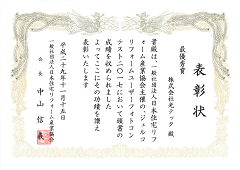 表彰状
最優秀賞
株式会社光テック 殿
貴殿は、一般社団法人日本住宅リフ
ォーム産業協会主催の、ジェルコ
リフォームユーザーフォトコン
テスト二〇一七において頭書の
成績を収められました
よってここにその功績を讃え
表彰いたします
平成二十九年十一月十五日
一般社団法人日本住宅リフォーム産業協会
会長 中山信義